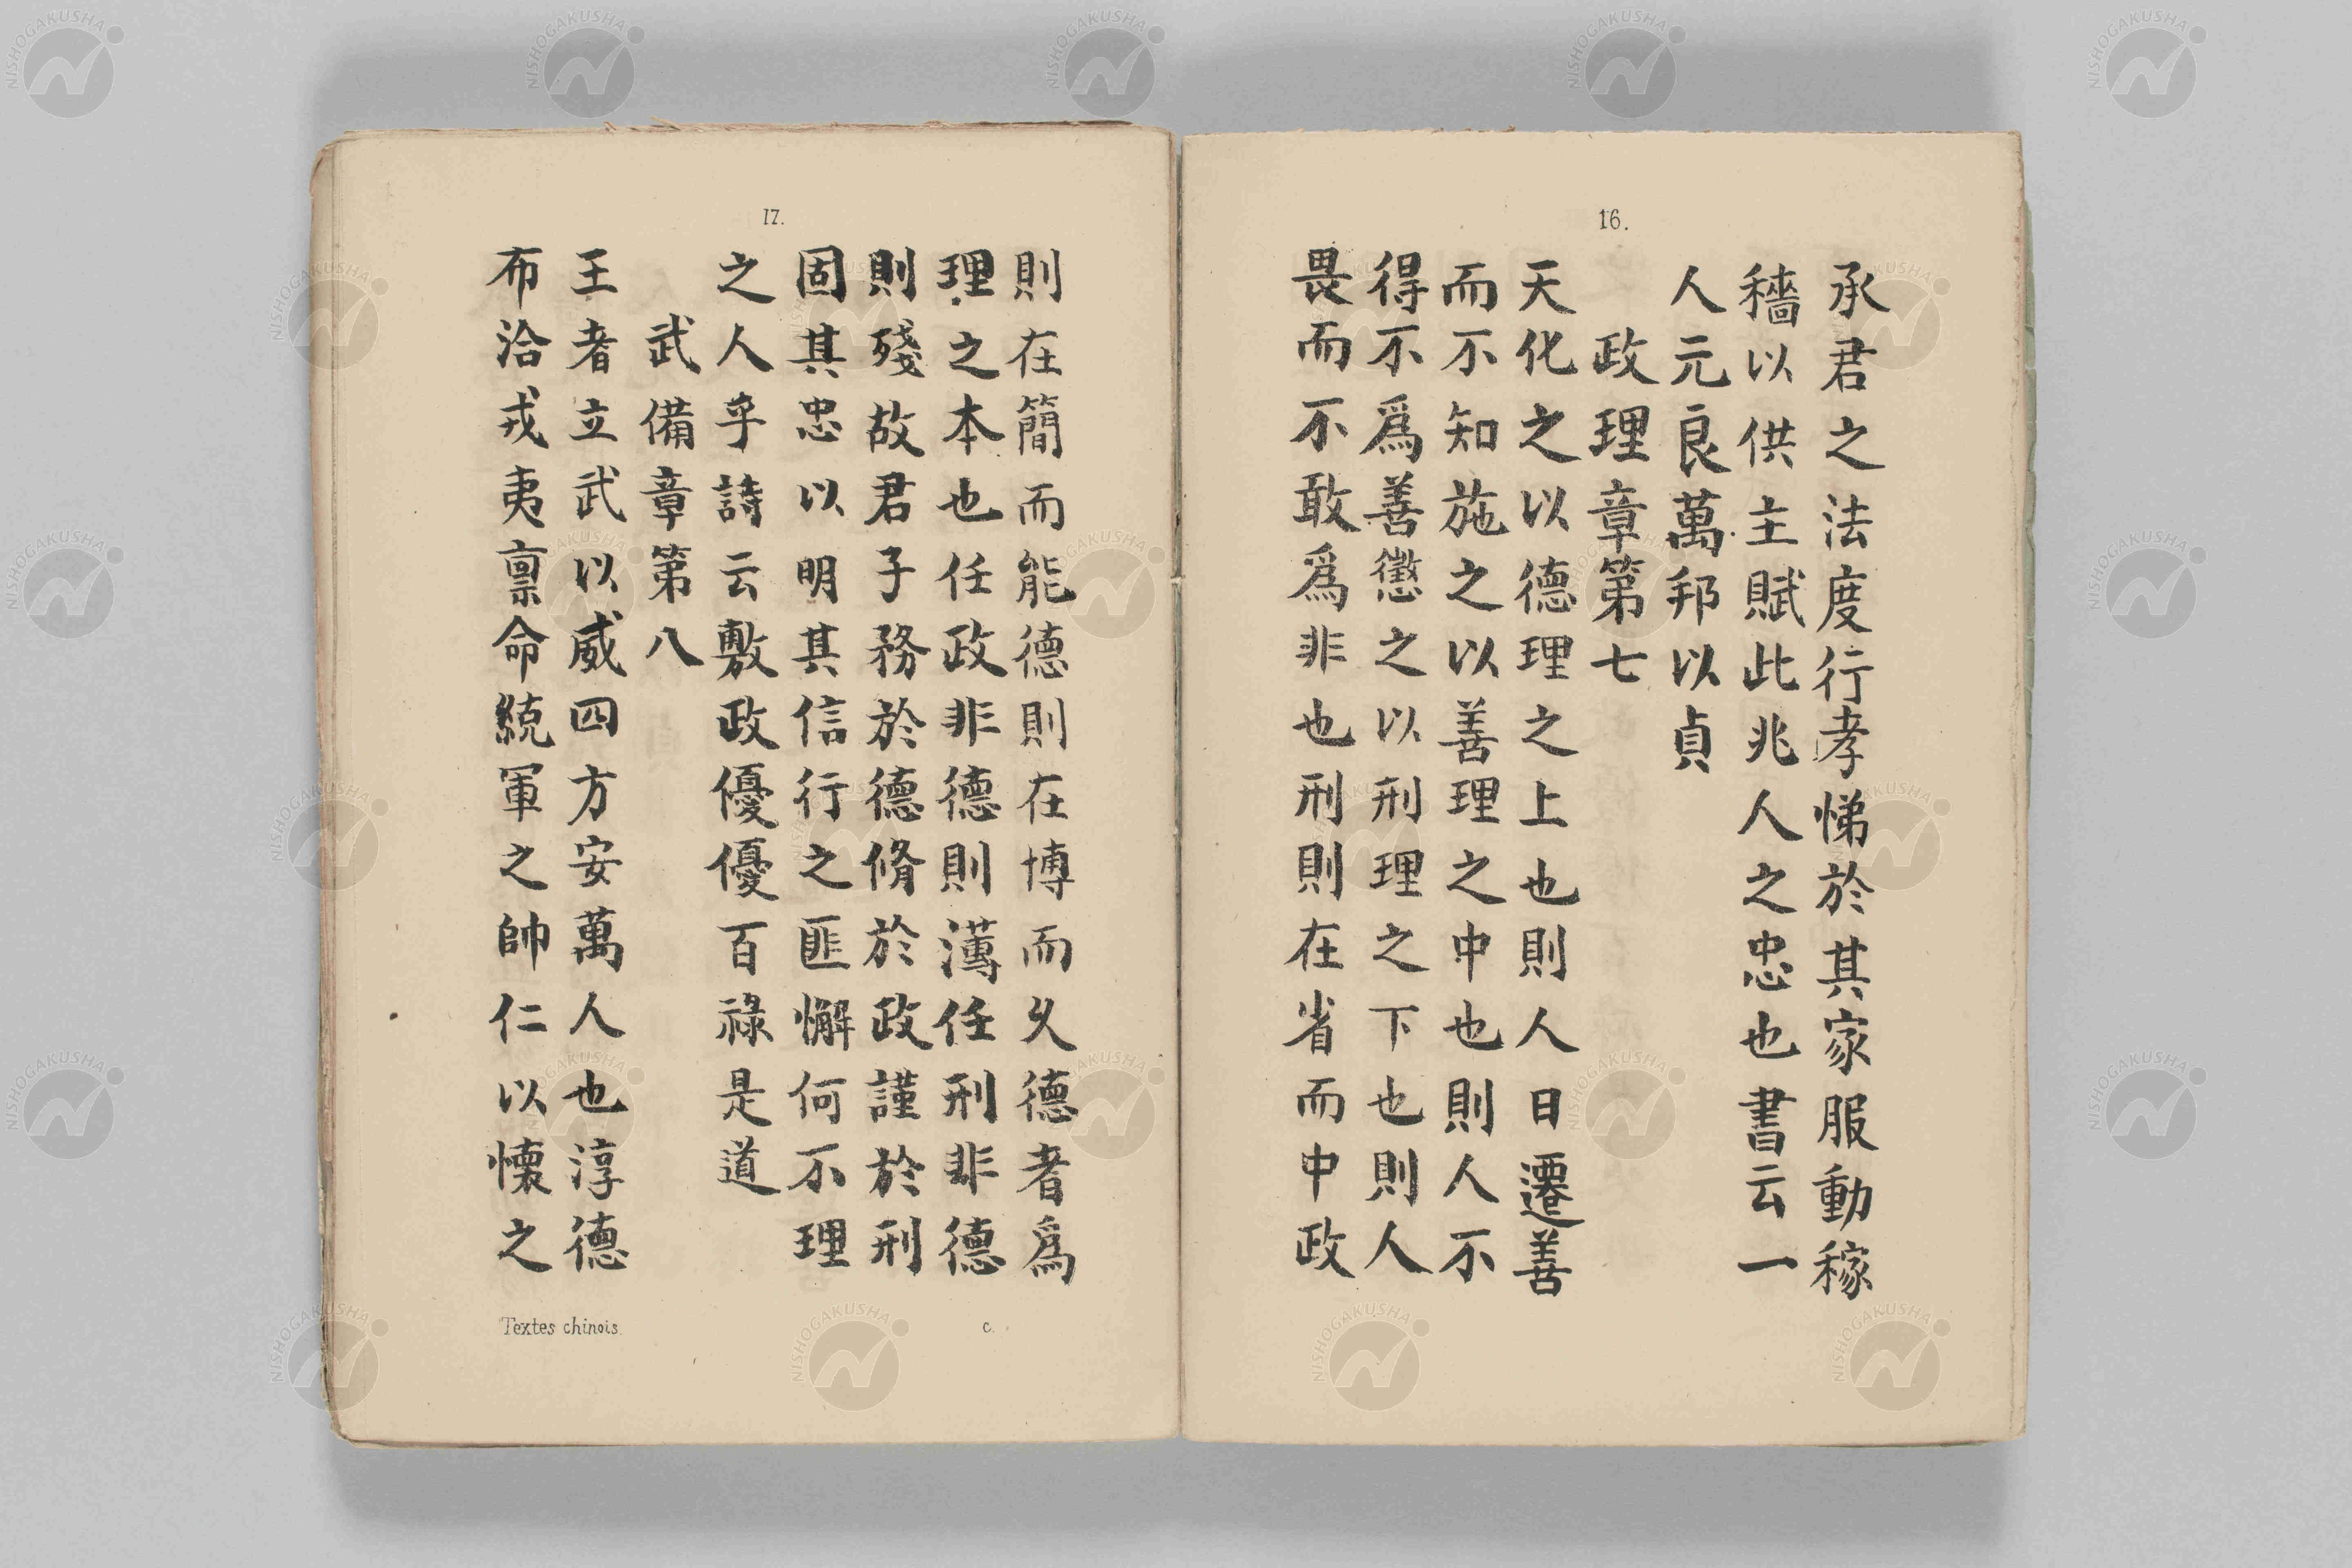 16.
承君之法度行孝悌於其家服動稼
穡以供主賦此兆人之忠也書云一
人元良萬邦以貞
政理章第七
天化之以德理之上也則人日遷善
而不知施之以善理之中也則人不
得不爲善懲之以刑理之下也則人
畏而不敢爲非也刑則在省而中政
17.
則在簡而能德則在博而乆德者爲
理之本也任政非德則薄任刑非德
則殘故君子務於德脩於政謹於刑
固其忠以明其信行之匪懈何不理
之人乎詩云敷政優優百祿是道
武備章第八
王者立武以威四方安萬人也淳德
布洽戎夷稟命統軍之帥仁以懷之
Textes chinois.
c.
NISHOGAKUSHA